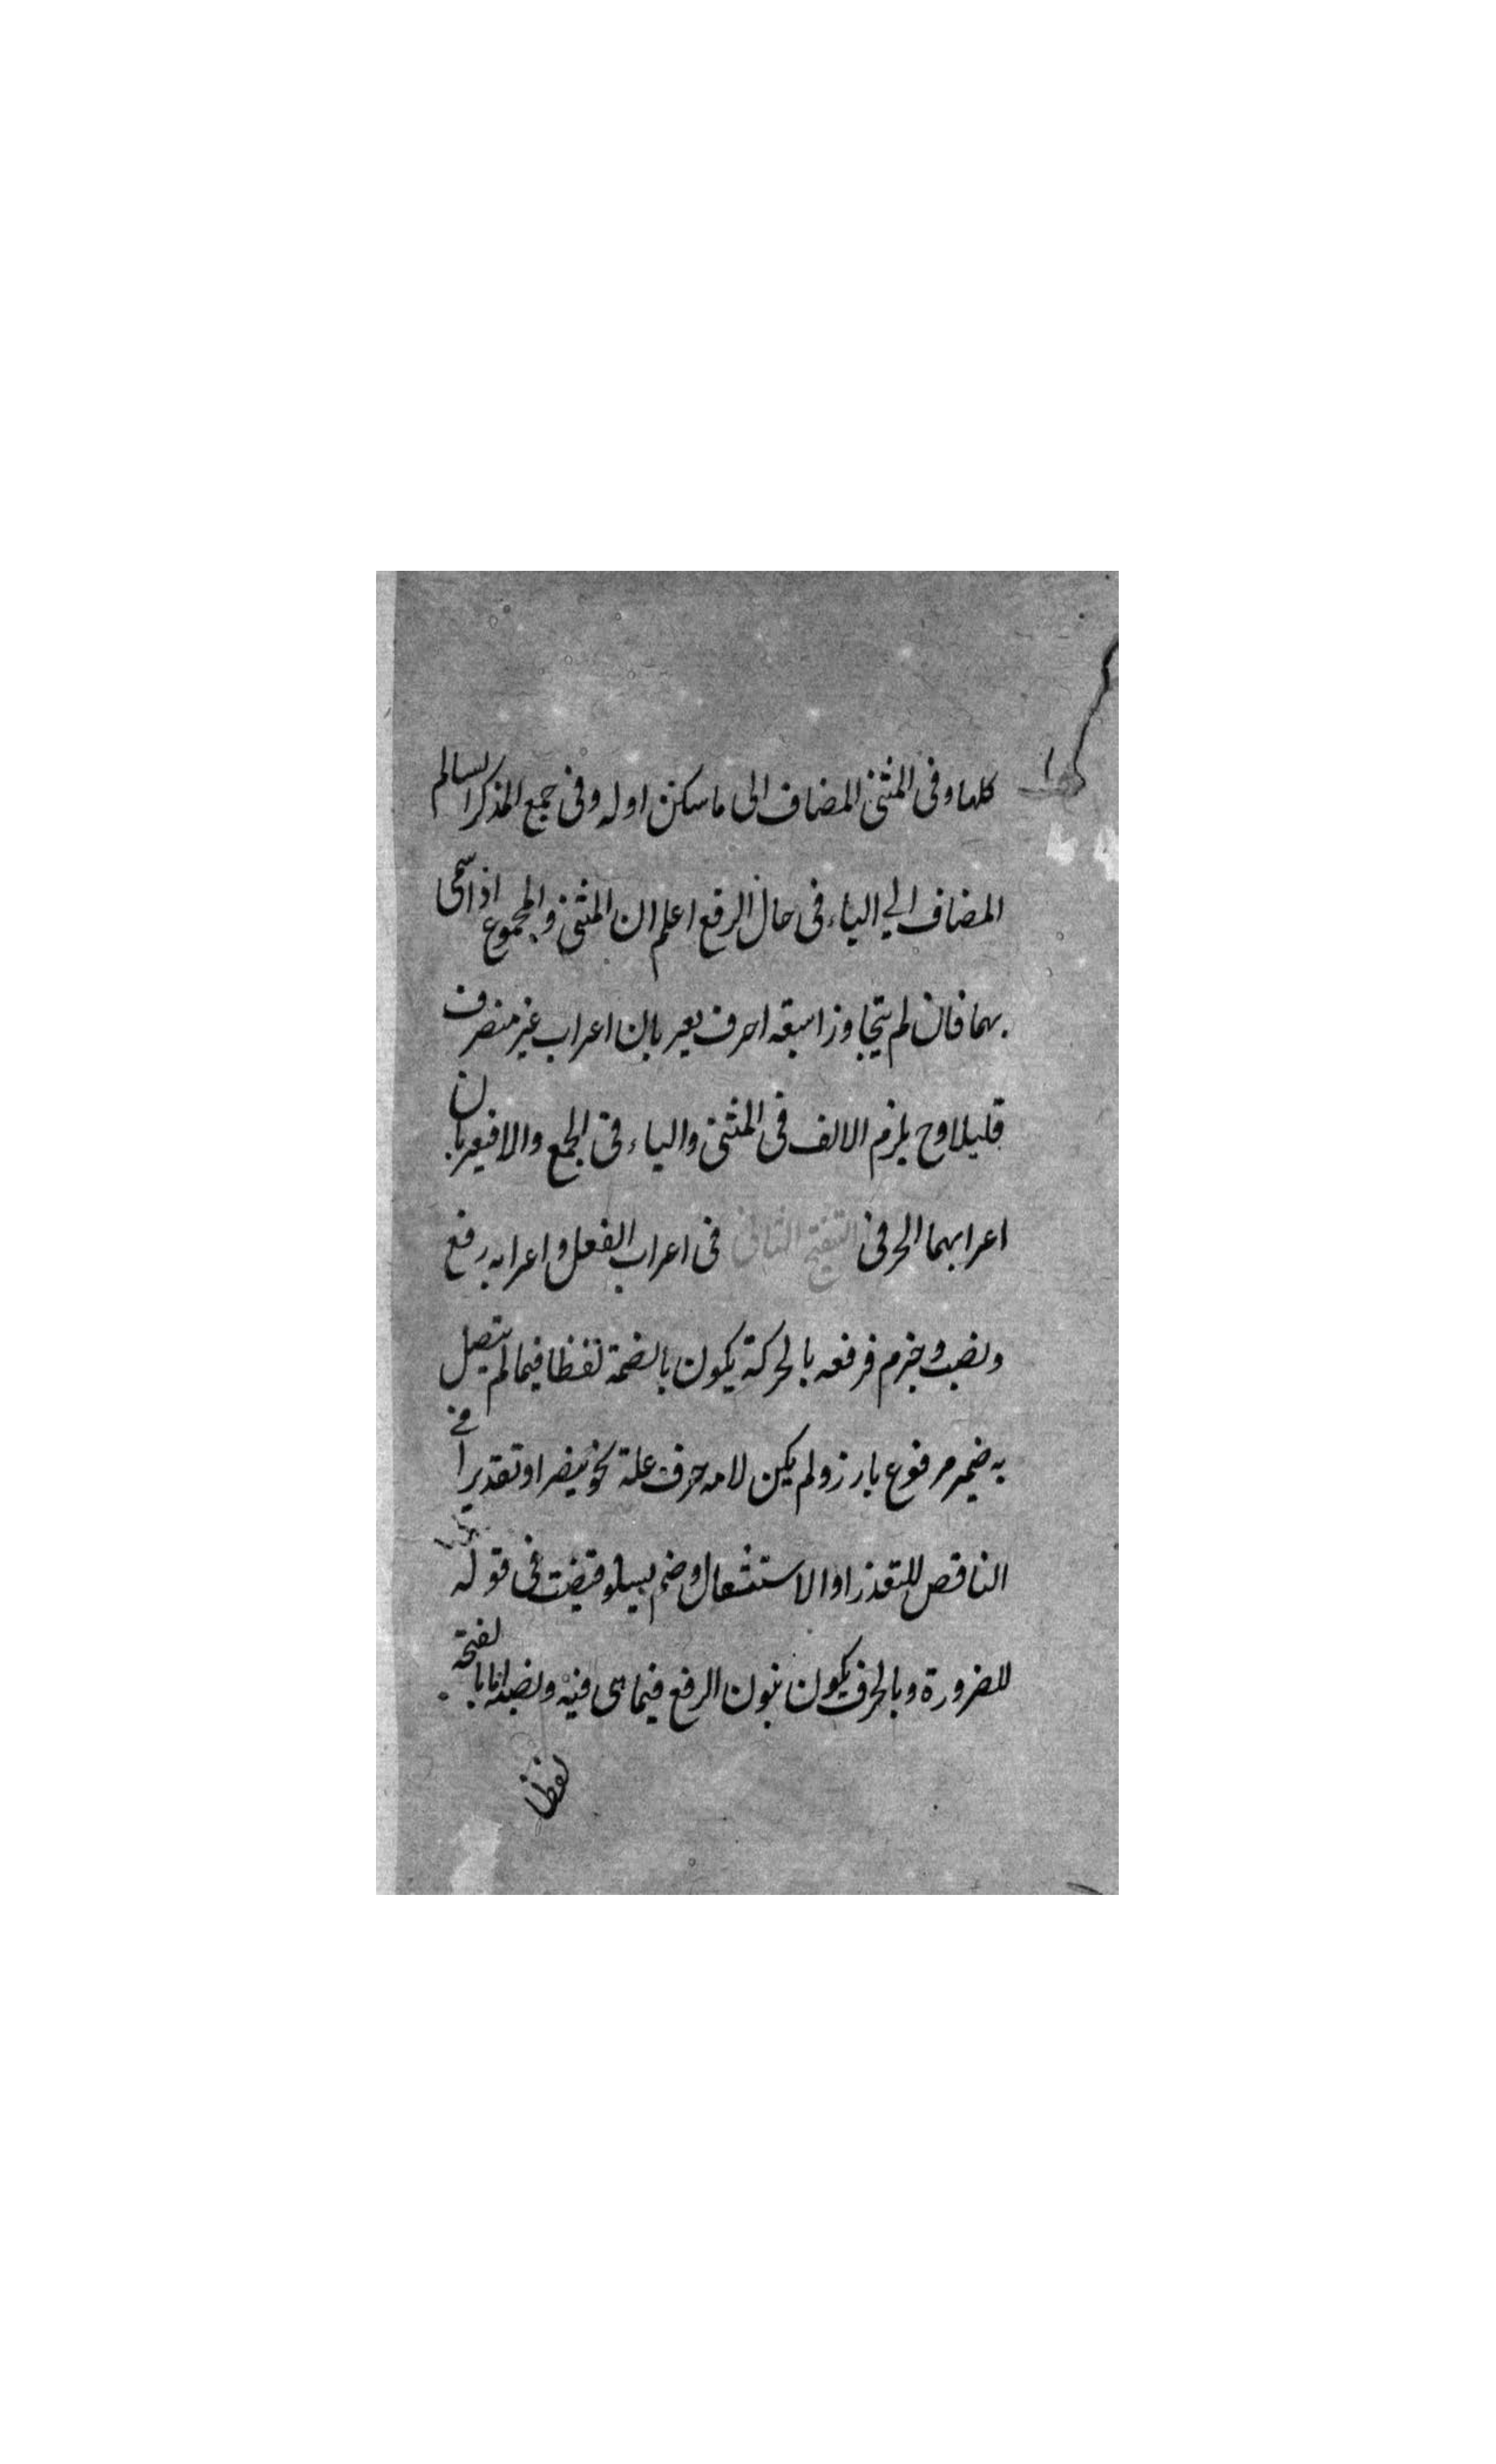 كلها وفى المثنى المضاف الى ما سكن اوله وفى جمع المذكر السالم
المضاف الي الياء فى حال الرفع اعلم ان المثنى والمجموع اذا سمى
بهما فان لم يتجاوزا سبعة احرف يعربان اعراب غير منصرف
قليلا وح يلزم الالف فى المثنى والياء فى الجمع والا فيعربان
اعرابهما الحرفى التنقيح الثانى فى اعراب الفعل واعرابه رفع
ونصب وجزم فرفعه بالحركة يكون بالضمة لفظا فيما لم يتصل
به ضمير مرفوع بارز ولم يكن لامه حرف علة نحو ينصر او تقديرا فى
الناقص للتعذر او الاستثقال وضم يسلو فى قوله
للضرورة وبالحرف يكون بنون الرفع فيما هى فيه ونصبه اما بالفتحة
لفظا